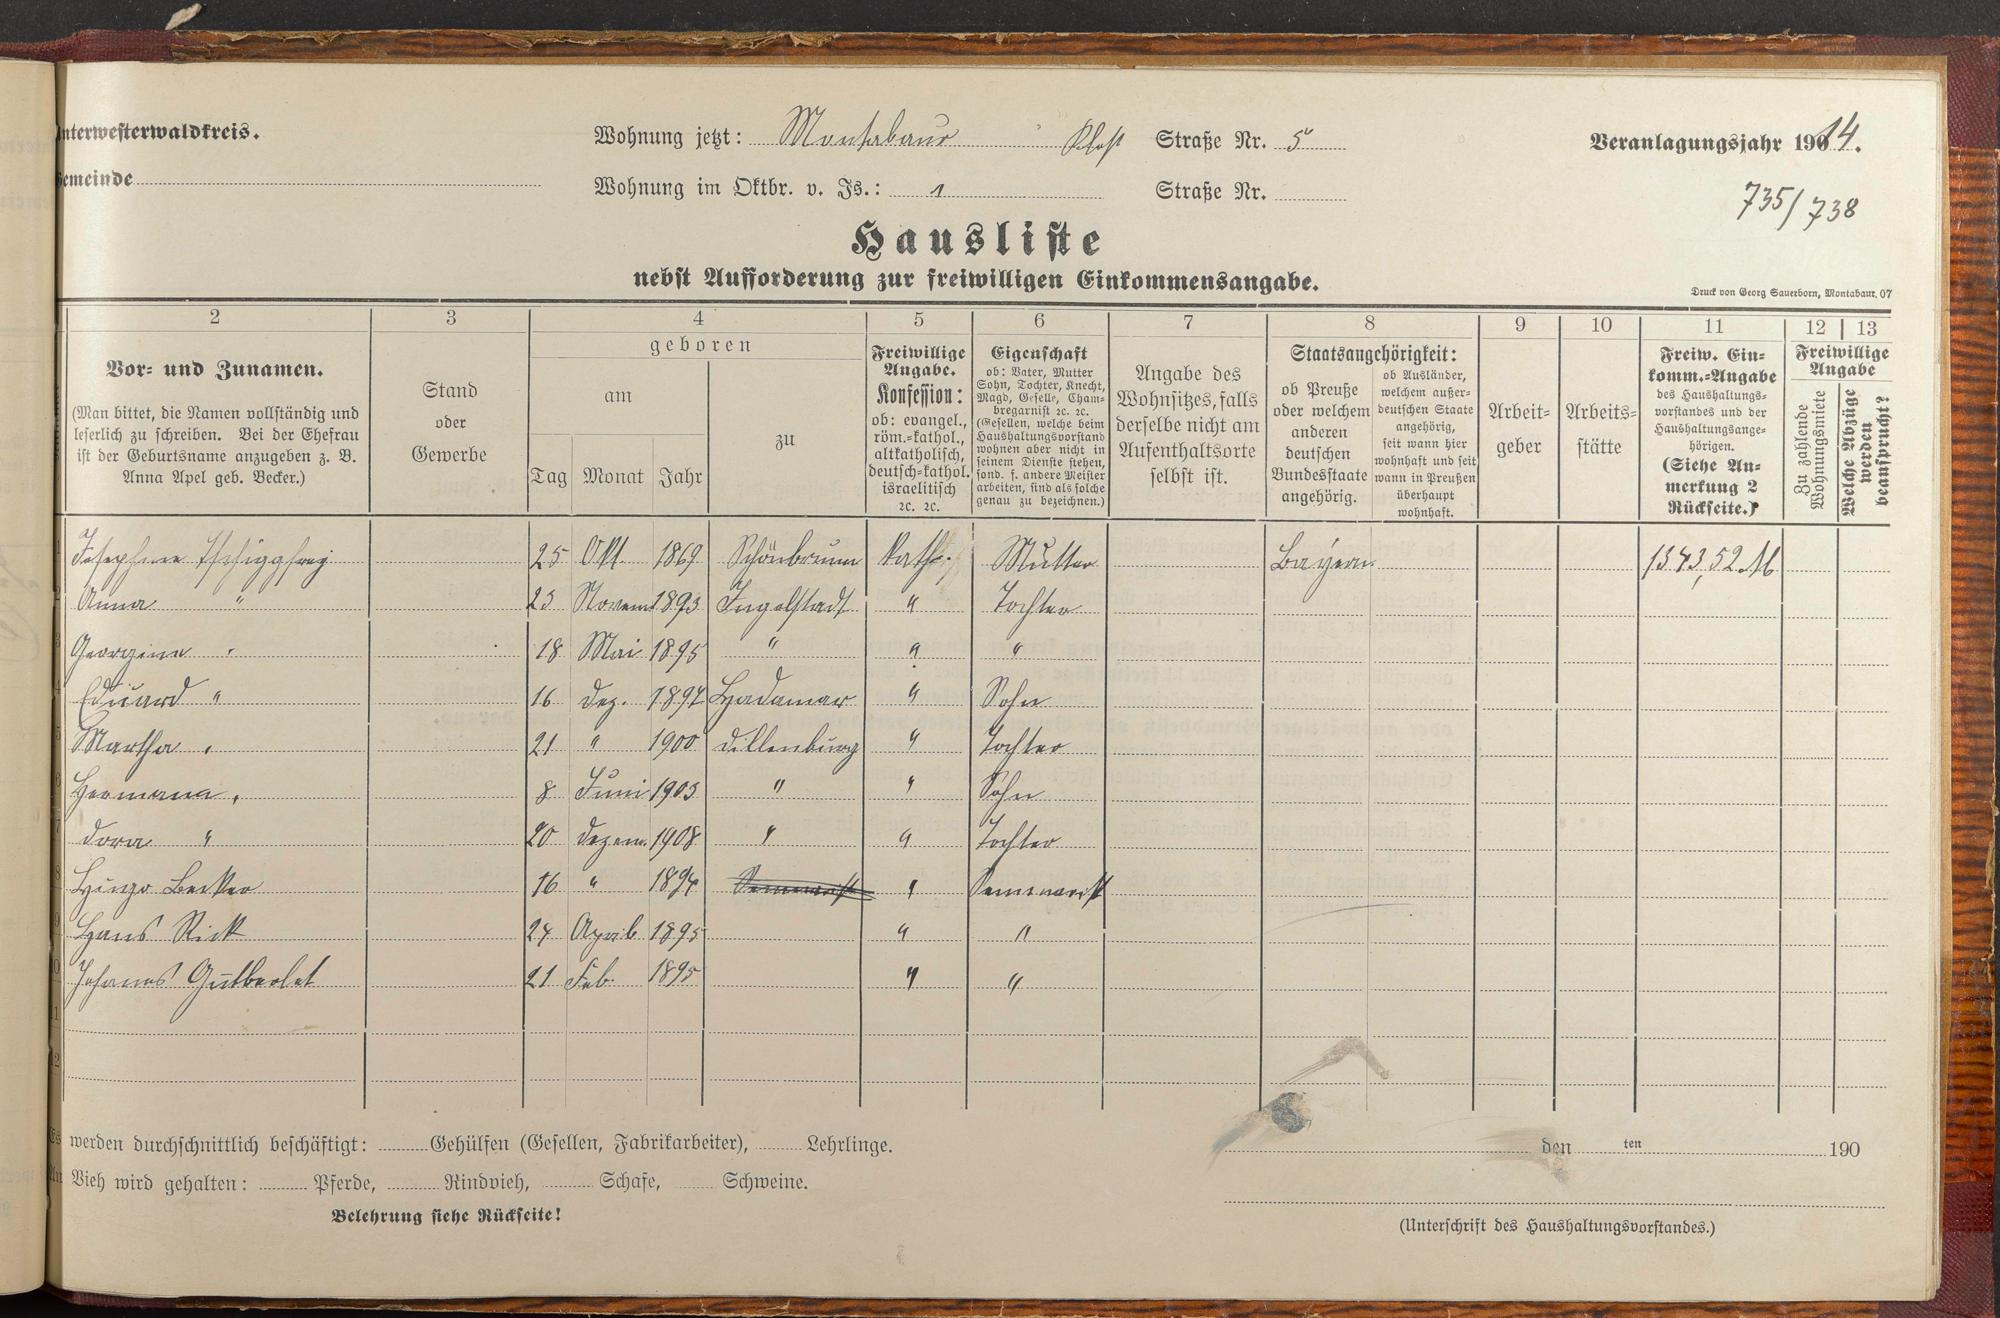 Unterwesterwaldkreis.
Wohnung jetzt: Montabaur Straße Nr. 5
Veranlagungsjahr 1914.
Gemeinde
Wohnung im Oktbr. v. Js.: Straße Nr.
735/738
Hausliste
nebst Aufforderung zur freiwilligen Einkommensangabe.
Druck von Georg Sauerborn, Montabaur. 07
2 3 4 5 6 7 8 9 10 11 12 13
Vor- und Zunamen.
(Man bittet, die Namen vollständig und
leserlich zu schreiben. Bei der Ehefrau
ist der Geburtsname anzugeben z. B.
Anna Apel geb. Becker.)
Stand
oder
Gewerbe
geboren
am
Tag Monat Jahr
zu
Freiwillige
Angabe.
Konfession:
ob: evangel.,
röm.=kathol.,
altkatholisch,
deutsch=kathol.
israelitisch
2c. 2c.
Eigenschaft
ob: Vater, Mutter
Sohn, Tochter, Knecht,
Magd, Geselle, Cham-
bregarnist 2c. 2c.
(Gesellen, welche beim
Haushaltungsvorstand
wohnen aber nicht in
seinem Dienste stehen,
sond. f. andere Meister
arbeiten, sind als solche
genau zu bezeichnen.)
Angabe des
Wohnsitzes, falls
derselbe nicht am
Aufenthaltsorte
selbst ist.
Staatsangehörigkeit:
ob Preuße
oder welchem
anderen
deutschen
Bundesstaate
angehörig.
ob Ausländer,
welchem außer-
deutschen Staate
angehörig,
seit wann hier
wohnhaft und seit
wann in Preußen
überhaupt
wohnhaft.
Arbeit-
geber
Arbeits-
stätte
Freiw. Ein-
komm.=Angabe
des Haushaltungs-
vorstandes und der
Haushaltungsange-
hörigen.
(Siehe An-
merkung 2
Rückseite.)
Freiwillige
Angabe
Zu zahlende
Wohnungsmiete
Welche Abzüge
werden
beansprucht?
Josephine 25 Okt. 1869 Schönbrunn kath. Mutter Bayern 1343,52 M
Anna " 23 Novem 1893 Ingolstadt " Tochter
Georgine " 18 Mai 1895 " " "
Eduard " 16 Dez. 1897 Hadamar " Sohn
Martha " 21 " 1900 Dillenburg " Tochter
Hermann " 8 Juni 1903 " " Sohn
Dora " 20 Dezem. 1908 " " Tochter
Hugo Becker 16 " 1894 "
Hans Rick 24 April 1895 " "
Johanes Gutberlet 21 Feb. 1895 " "
Es werden durchschnittlich beschäftigt: Gehülfen (Gesellen, Fabrikarbeiter), Lehrlinge.
An Vieh wird gehalten: Pferde, Rindvieh, Schafe, Schweine.
Belehrung siehe Rückseite!
den ten 190
(Unterschrift des Haushaltungsvorstandes.)